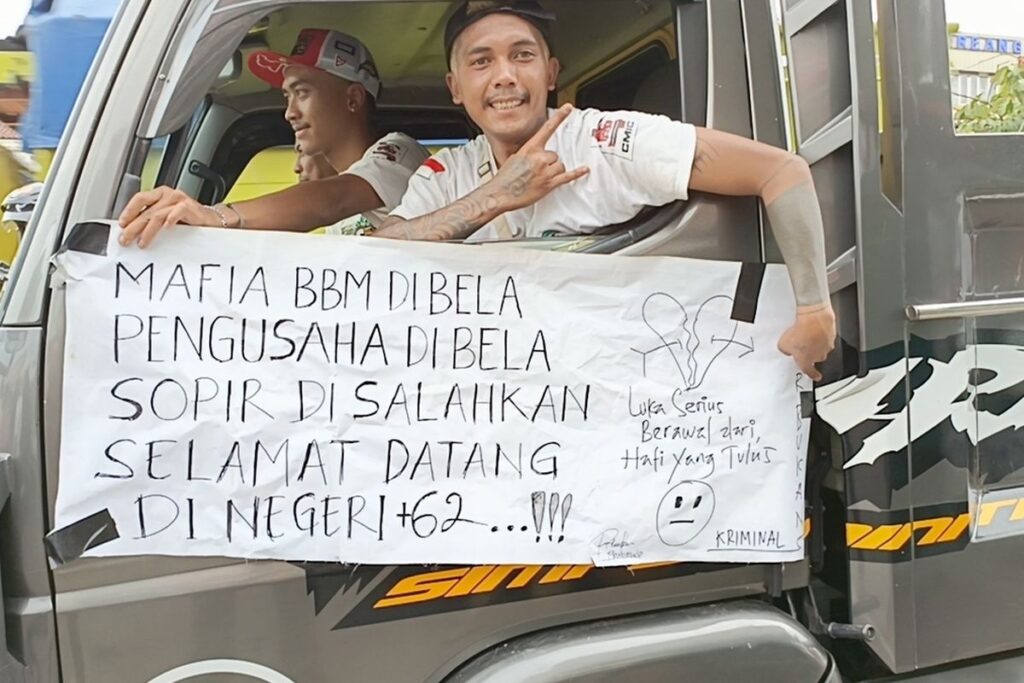 MAFIA BBM DIBELA
PENGUSAHA DIBELA
SOPIR DISALAHKAN
SELAMAT DATANG
DI NEGERI +62...!!!
Luka Serius
Berawal dari,
Hati Yang Tulus
KRIMINAL
CMIC